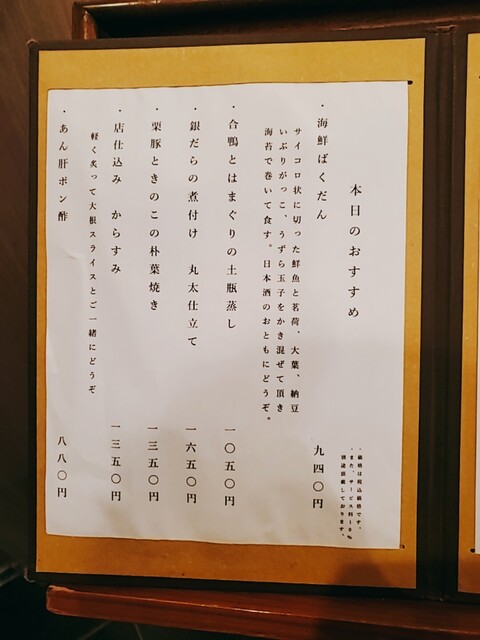 本日のおすすめ
・価格は税込価格です。
・また、サービス料10%
別途頂戴しております。
・海鮮ばくだん 九四〇円
サイコロ状に切った鮮魚と茗荷、大葉、納豆
いぶりがっこ、うずら玉子をかき混ぜて頂き
海苔で巻いて食す。日本酒のおともにどうぞ。
・合鴨とはまぐりの土瓶蒸し 一〇五〇円
・銀だらの煮付け 丸太仕立て 一六五〇円
・栗豚ときのこの朴葉焼き 一三五〇円
・店仕込み からすみ 一三五〇円
軽く炙って大根スライスとご一緒にどうぞ
・あん肝ポン酢 八八〇円